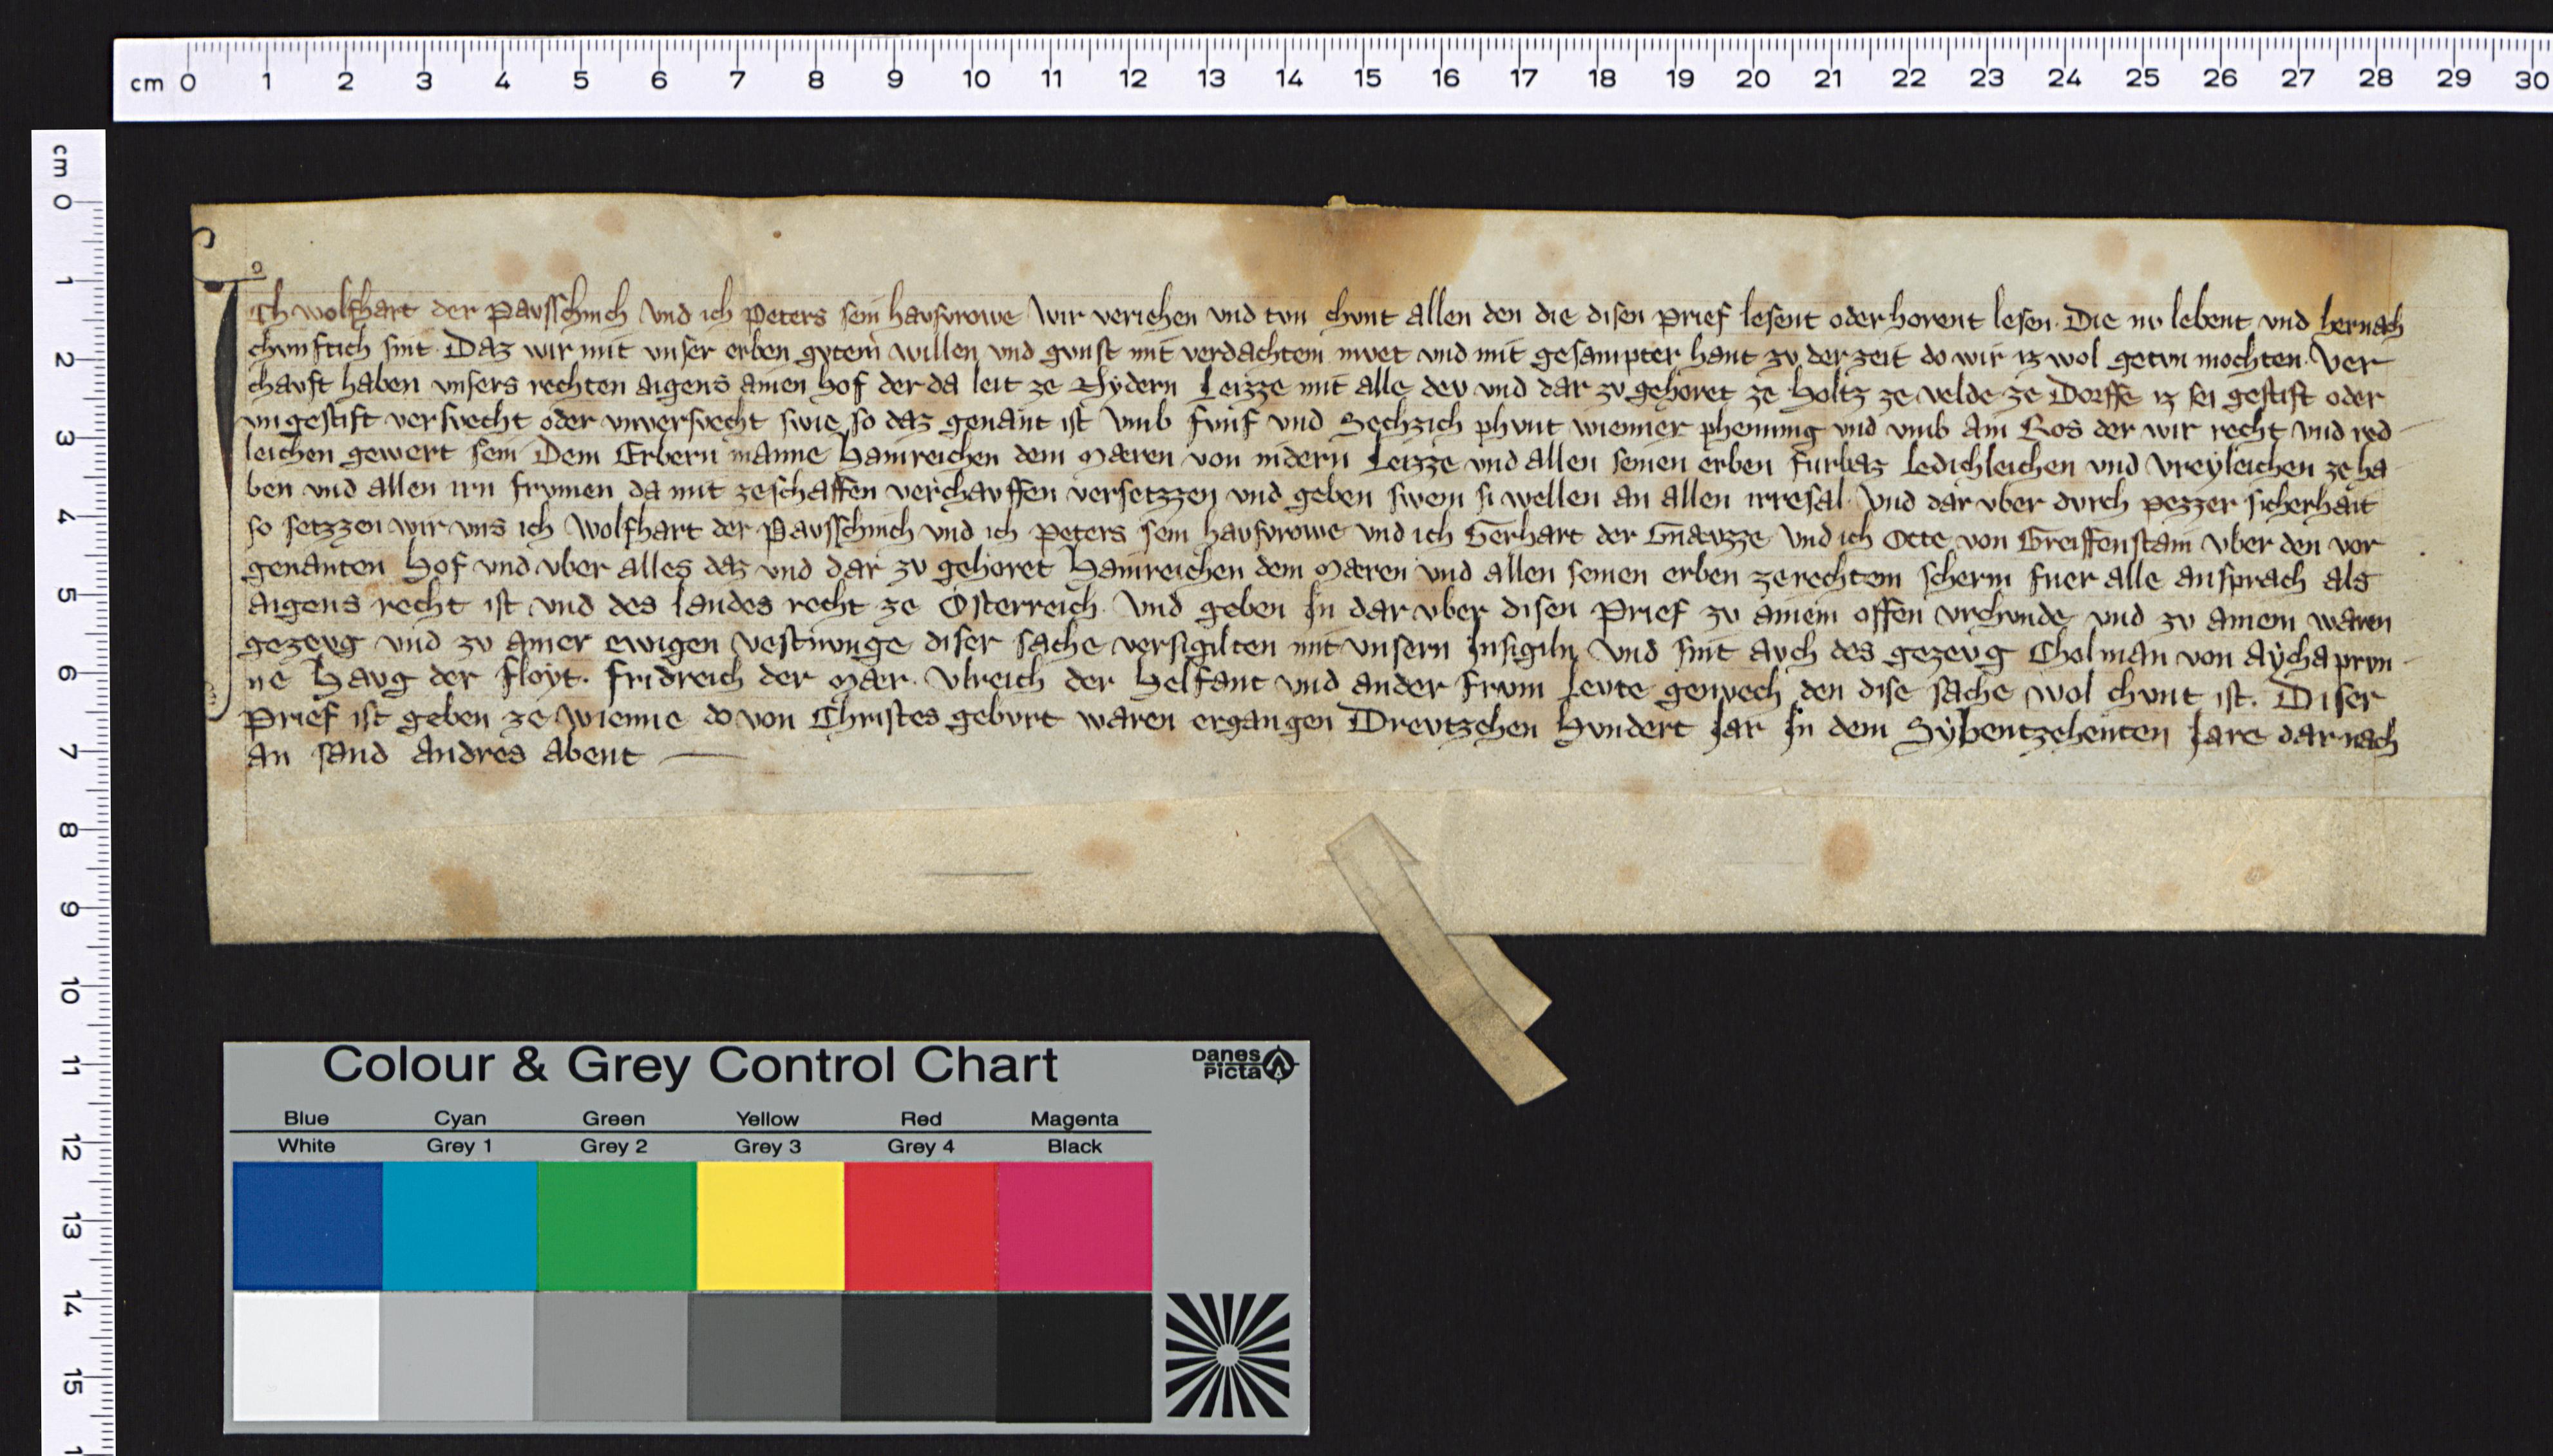 cm 0 1 2 3 4 5 6 7 8 9 10 11 12 13 14 15 16 17 18 19 20 21 22 23 24 25 26 27 28 29 30
cm 0 1 2 3 4 5 6 7 8 9 10 11 12 13 14 15
Ich Wolfhart der Pavsschinch vnd ich Peters sein havsvrowe wir veriehen vnd tvn chvnt allen den die disen prief lesent oder horent lesen. Die nv lebent vnd hernach
chvnftich sint. Daz wir mit vnser erben gvtem willen vnd gvnst mit verdachtem mvet vnd mit gesampter hant zv der zeit do wir iz wol getvn mochten. Ver
chavft haben vnsers rechten aigens ainen hof der da leit ze Nydern Leizze mit alle dev vnd dar zv gehoret ze holtz ze velde ze Dorffe iz sei gestift oder
vngestift versvecht oder vnversvecht swie so daz genant ist vmb fvnf vnd Sechzich phvnt wienner phenning vnd vmb ain Ros der wir recht vnd red
leichen gewert sein Dem Erbern manne Hainreichen dem Maren von nidern Leizze vnd allen seinen erben furbaz ledichleichen vnd vreyleichen ze ha
ben vnd allen irn frvmen da mit ze schaffen verchavffen versetzzen vnd geben swem si wellen an allen irresal. Vnd dar vber dvrch pezzer sicherhait
so setzzen wir vns ich Wolfhart der Pavsschinch vnd ich Peters sein havsvrowe vnd ich Gerhart der Gnavzze vnd ich Otte von Greiffenstain vber den vor
genanten Hof vnd vber alles daz vnd dar zv gehoret Hainreichen dem Maren vnd allen seinen erben ze rechtem scherm fuer alle ansprach als
aigens recht ist vnd des landes recht ze Osterreich. Vnd geben in dar vber disen Prief zv ainem offen vrchvnde vnd zv ainem waren
gezevg vnd zv ainer ewigen vestnvnge diser sache versigilten mit vnsern Insigiln vnd sint avch des gezevg Cholman von Aychaprvn
ne Havg der Floyt. Fridreich der Mær. Vlreich der Helfant vnd ander frvm levte genvech den dise sache wol chvnt ist. Diser
Prief ist geben ze Wienne do von Christes gebvrt waren ergangen Drevtzehen hvndert Jar in dem Sybentzehenten Jare darnach
an sand Andres abent
Colour & Grey Control Chart
Danes Picta
Blue Cyan Green Yellow Red Magenta
White Grey 1 Grey 2 Grey 3 Grey 4 Black